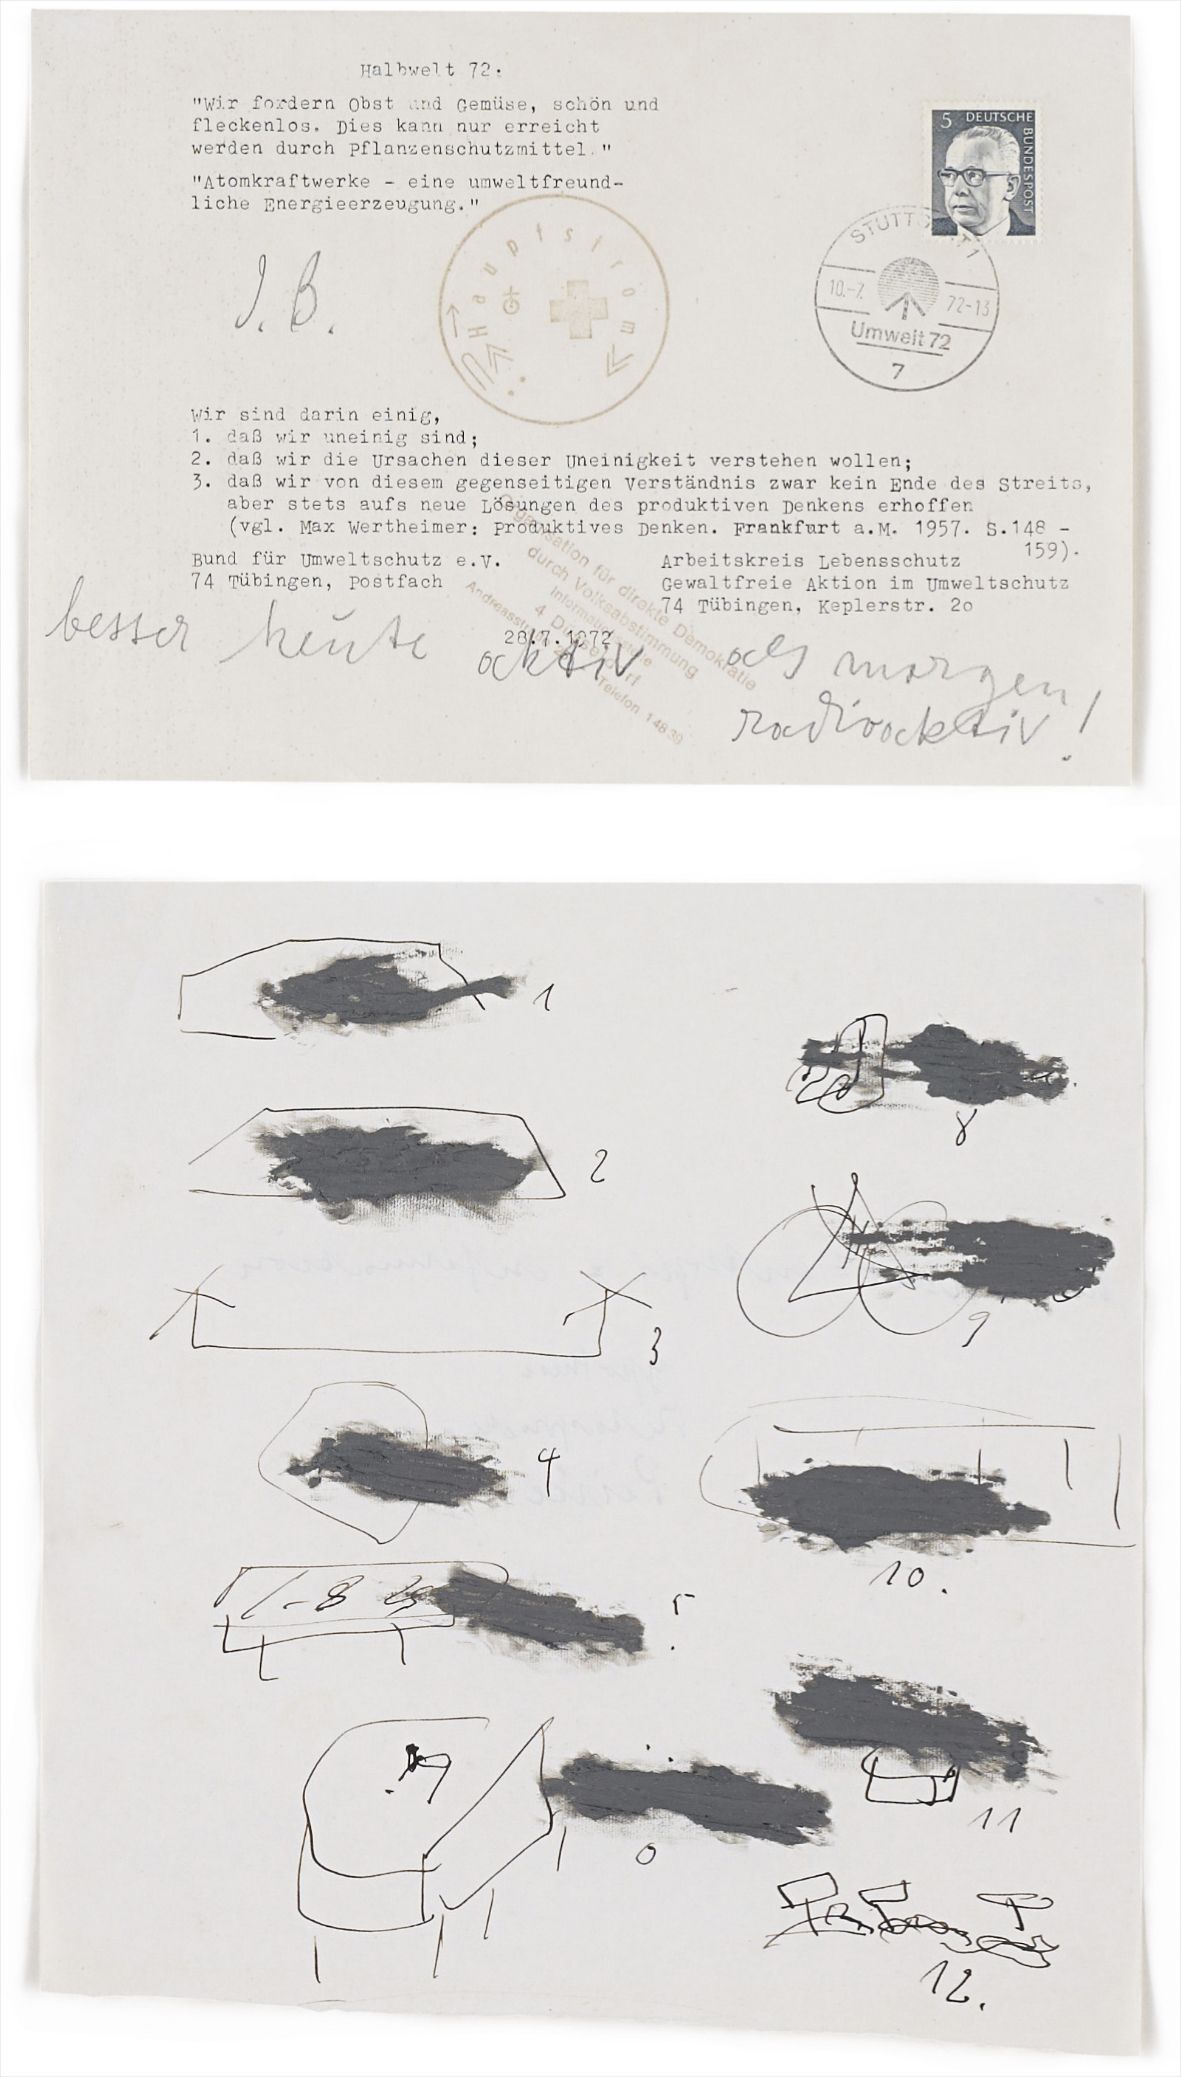 Halbwelt 72:
"Wir fordern Obst und Gemüse, schön und
fleckenlos. Dies kann nur erreicht
werden durch Pflanzenschutzmittel."
"Atomkraftwerke - eine umweltfreund-
liche Energieerzeugung."
5 DEUTSCHE
BUNDESPOST
STUTTGART 1
10.-7. 72-13
Umwelt 72
7
J. B.
Hauptstrom
Wir sind darin einig,
1. daß wir uneinig sind;
2. daß wir die Ursachen dieser Uneinigkeit verstehen wollen;
3. daß wir von diesem gegenseitigen Verständnis zwar kein Ende des Streits,
aber stets aufs neue Lösungen des produktiven Denkens erhoffen
(vgl. Max Wertheimer: Produktives Denken. Frankfurt a.M. 1957. S.148 -
159).
Bund für Umweltschutz e.V.
74 Tübingen, Postfach
Arbeitskreis Lebensschutz
Gewaltfreie Aktion im Umweltschutz
74 Tübingen, Keplerstr. 2o
28.7.1972
Organisation für direkte Demokratie
durch Volksabstimmung
Informationsstelle
4 Düsseldorf
Telefon 1 48 39
besser heute aktiv als morgen
radioaktiv!
1
2
3
4
5.
8
9
10.
11
12.